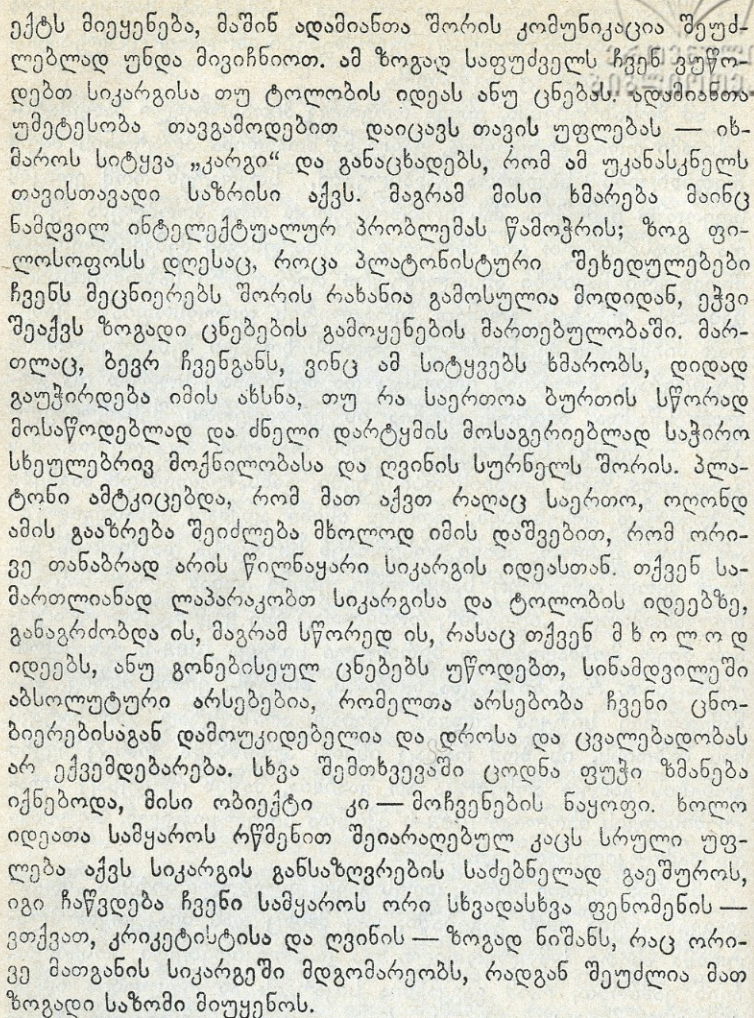 ექტს მიეყენება, მაშინ ადამიანთა შორის კომუნიკაცია შეუძ-
ლებლად უნდა მივიჩნიოთ. ამ ზოგად საფუძველს ჩვენ ვუწო-
დებთ სიკარგისა თუ ტოლობის იდეას ანუ ცნებას. ადამიანთა
უმეტესობა თავგამოდებით დაიცავს თავის უფლებას — იხ-
მაროს სიტყვა „კარგი“ და განაცხადებს, რომ ამ უკანასკნელს
თავისთავადი საზრისი აქვს. მაგრამ მისი ხმარება მაინც
ნამდვილ ინტელექტუალურ პრობლემას წამოჭრის; ზოგ ფი-
ლოსოფოსს დღესაც, როცა პლატონისტური შეხედულებები
ჩვენს მეცნიერებს შორის რახანია გამოსულია მოდიდან, ეჭვი
შეაქვს ზოგადი ცნებების გამოყენების მართებულობაში. მარ-
თლაც, ბევრ ჩვენგანს, ვინც ამ სიტყვებს ხმარობს, დიდად
გაუჭირდება იმის ახსნა, თუ რა საერთოა ბურთის სწორად
მოსაწოდებლად და ძნელი დარტყმის მოსაგერიებლად საჭირო
სხეულებრივ მოქნილობასა და ღვინის სურნელს შორის. პლა-
ტონი ამტკიცებდა, რომ მათ აქვთ რაღაც საერთო, ოღონდ
ამის გააზრება შეიძლება მხოლოდ იმის დაშვებით, რომ ორი-
ვე თანაბრად არის წილნაყარი სიკარგის იდეასთან. თქვენ სა-
მართლიანად ლაპარაკობთ სიკარგისა და ტოლობის იდეებზე,
განაგრძობდა ის, მაგრამ სწორედ ის, რასაც თქვენ მ ხ ო ლ ო დ
იდეებს, ანუ გონებისეულ ცნებებს უწოდებთ, სინამდვილეში
აბსოლუტური არსებებია, რომელთა არსებობა ჩვენი ცნო-
ბიერებისაგან დამოუკიდებელია და დროსა და ცვალებადობას
არ ექვემდებარება. სხვა შემთხვევაში ცოდნა ფუჭი ზმანება
იქნებოდა, მისი ობიექტი კი — მოჩვენების ნაყოფი. ხოლო
იდეათა სამყაროს რწმენით შეიარაღებულ კაცს სრული უფ-
ლება აქვს სიკარგის განსაზღვრების საძებნელად გაეშუროს,
იგი ჩაწვდება ჩვენი სამყაროს ორი სხვადასხვა ფენომენის —
ვთქვათ, კრიკეტისტისა და ღვინის — ზოგად ნიშანს, რაც ორი-
ვე მათგანის სიკარგეში მდგომარეობს, რადგან შეუძლია მათ
ზოგადი საზომი მიუყენოს.